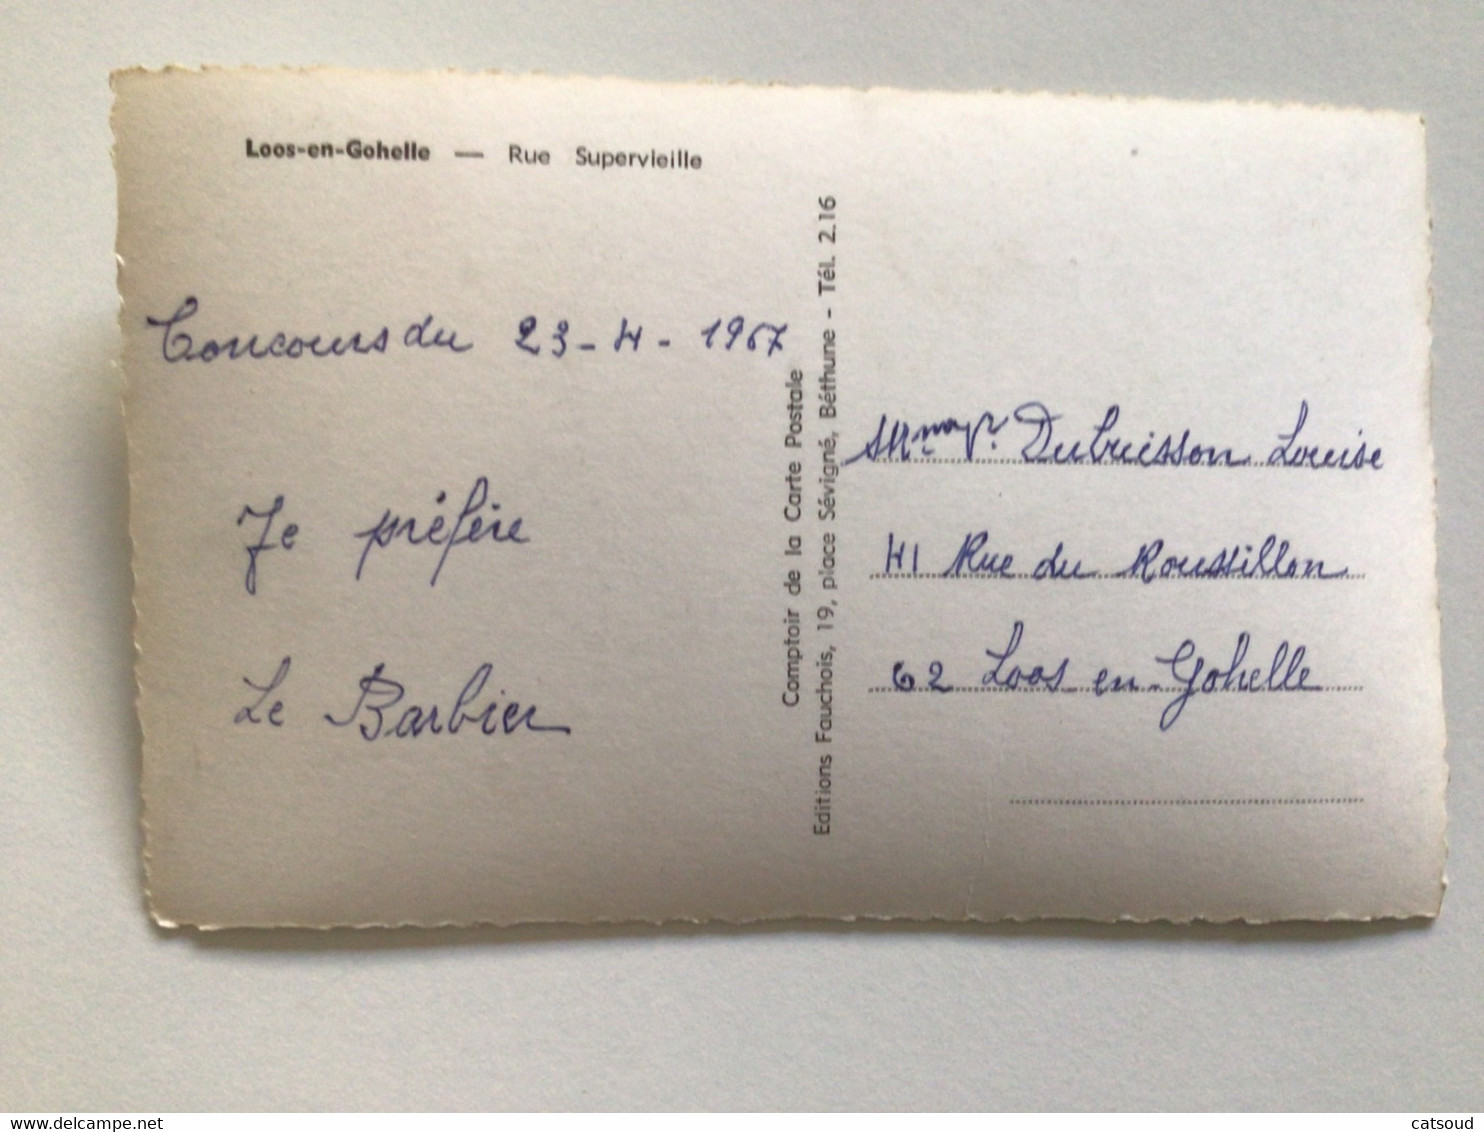 Loos-en-Gohelle — Rue Supervieille
Concours du 23-4-1967
Je préfère
Le Barbier
Comptoir de la Carte Postale
Editions Fauchois, 19, place Sévigné, Béthune - Tél. 2.16
Dubuisson Louise
41 Rue du Roussillon
62 Loos en-Gohelle
delcampe.net
catsoud